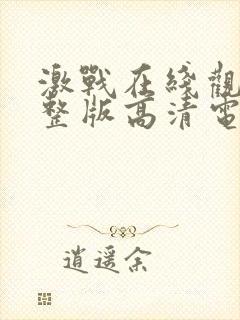 激戰在綫觀
整版高清電
逍遥余